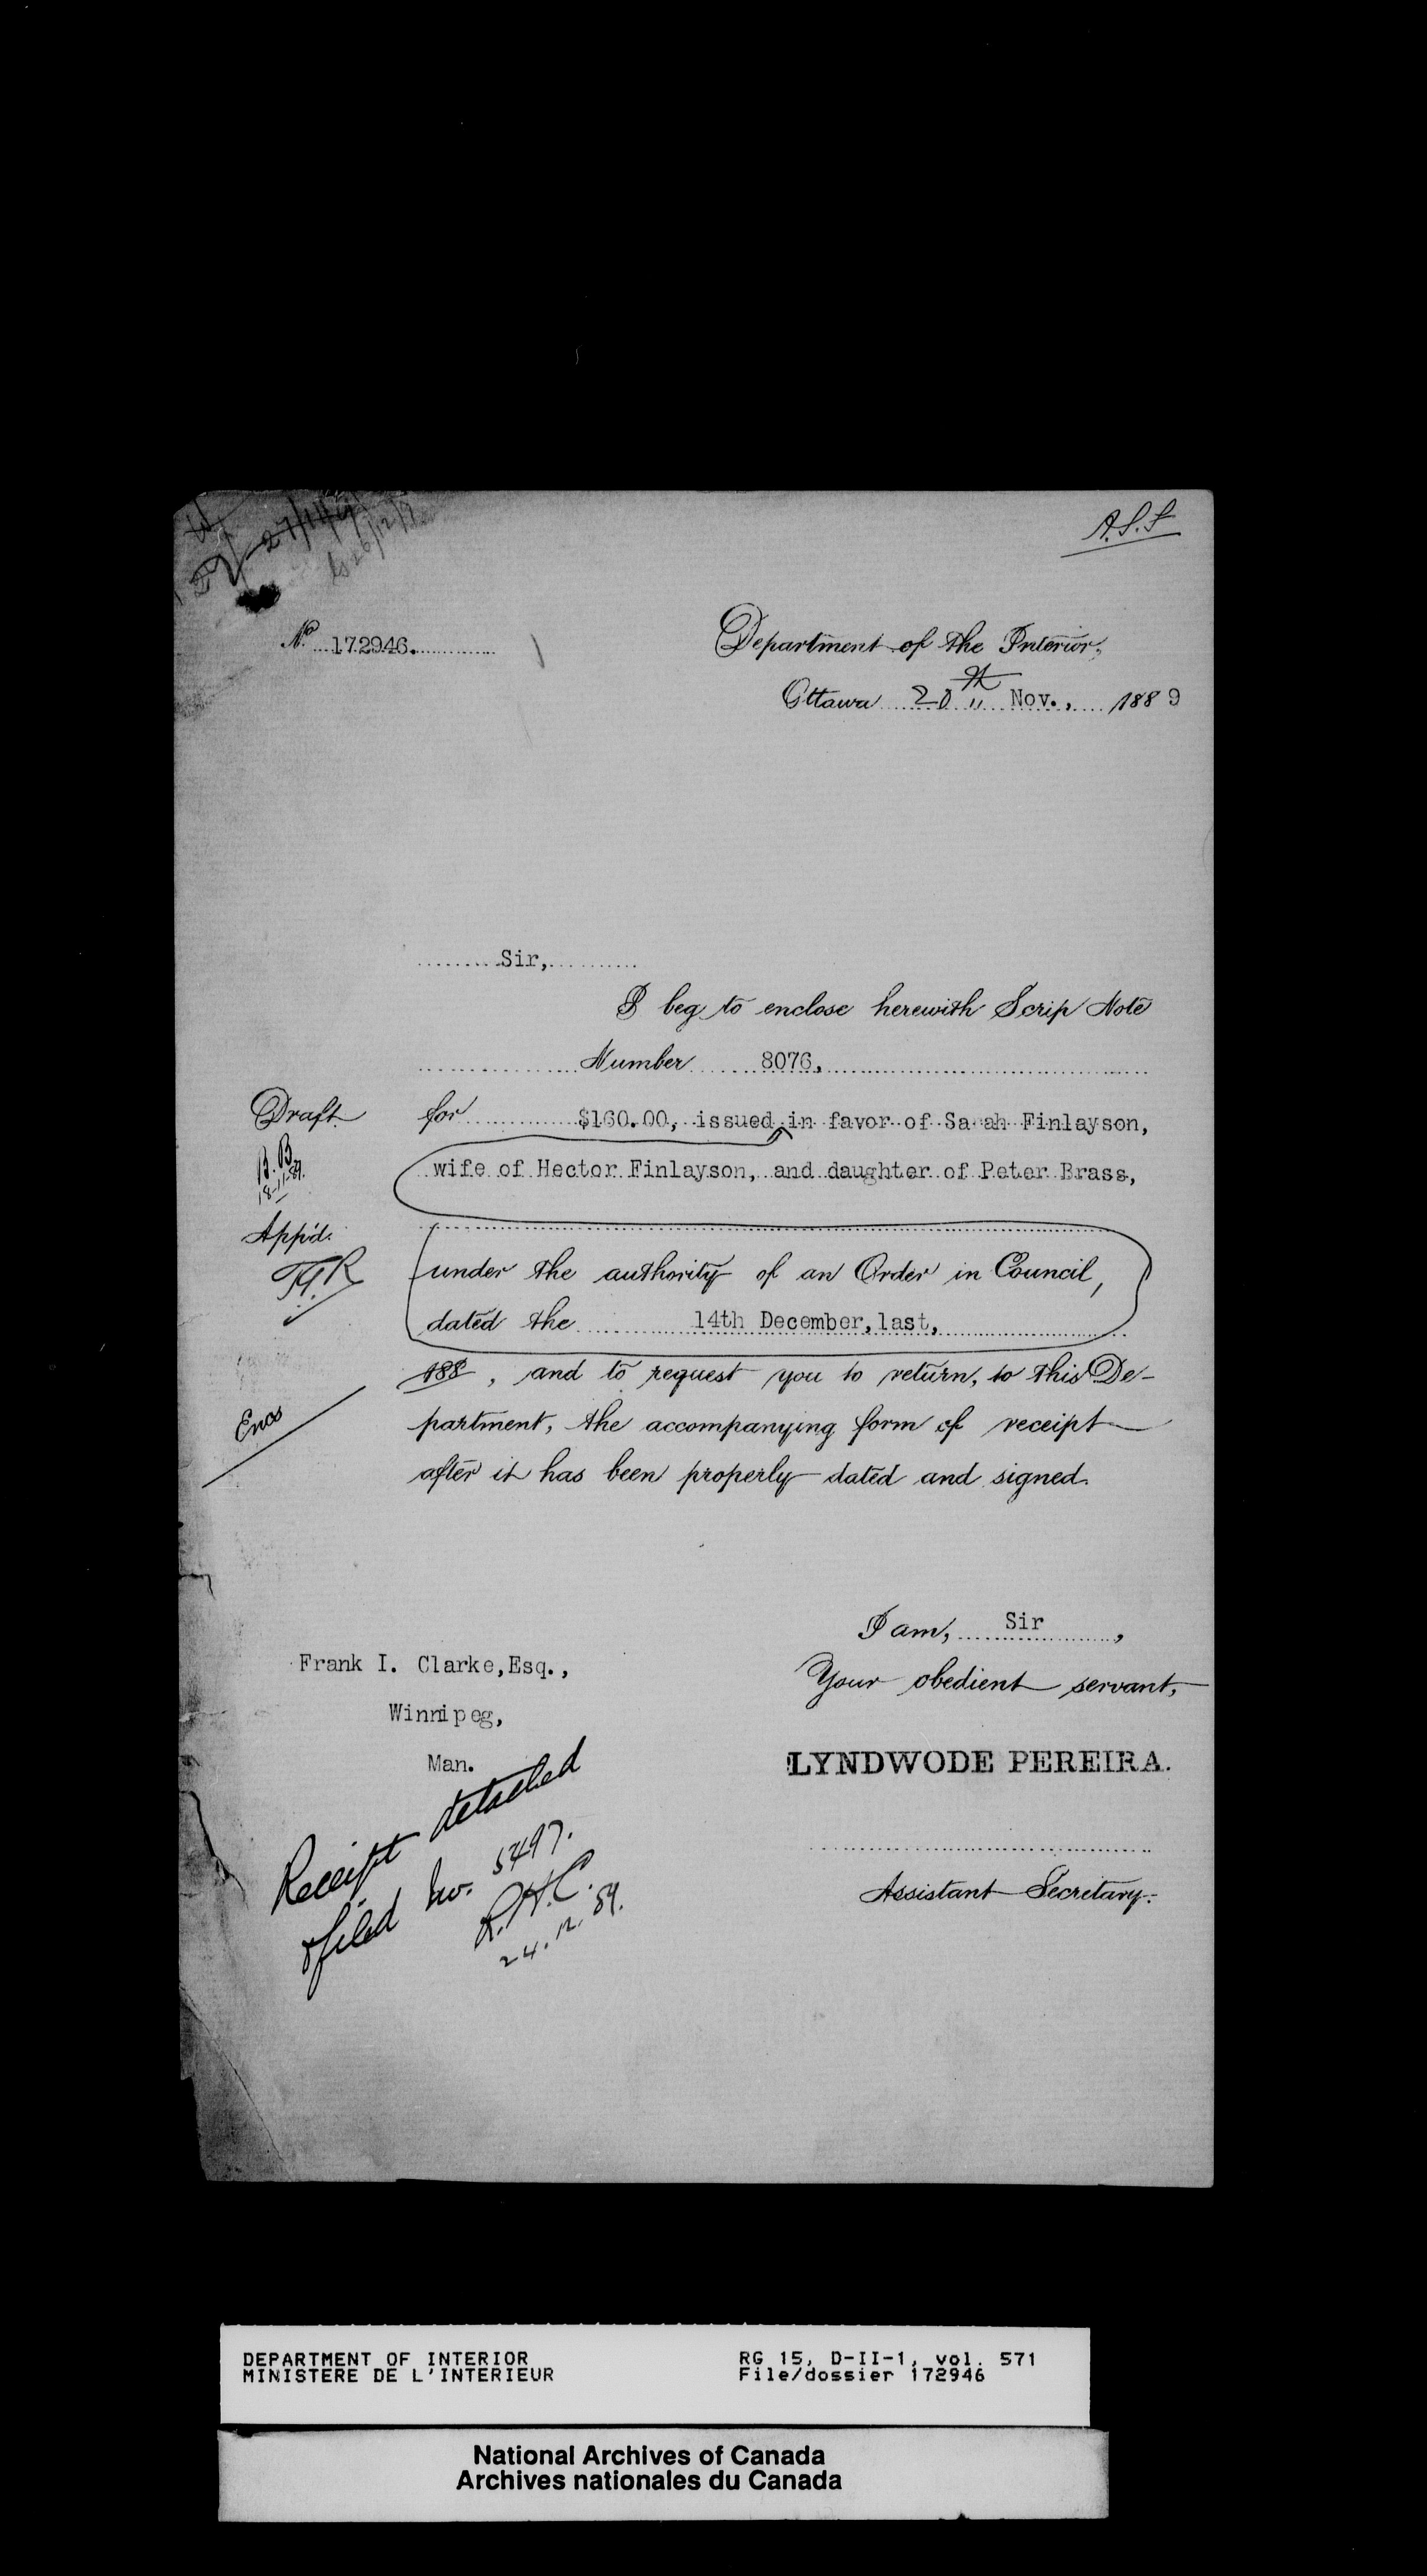 A.S.S
No 172946.
Department of the Interior,
Ottawa 20th Nov., 1889
Sir,
I beg to enclose herewith Scrip Note
Number 8076,
Draft
for $160.00, issued in favor of Sarah Finlayson,
B.B.
18-11-89.
wife of Hector Finlayson, and daughter of Peter Brass,
App'd.
under the authority of an Order in Council,
dated the 14th December, last,
188 , and to request you to return, to this De-
Encs
partment, the accompanying form of receipt
after it has been properly dated and signed.
I am, Sir,
Frank I. Clarke, Esq.,
Your obedient servant,
Winnipeg,
Man.
LYNDWODE PEREIRA.
Receipt detached
& filed No. 5497.
R.H.C.
24.12.89.
Assistant Secretary.
DEPARTMENT OF INTERIOR
MINISTERE DE L'INTERIEUR
RG 15, D-II-1, vol. 571
File/dossier 172946
National Archives of Canada
Archives nationales du Canada